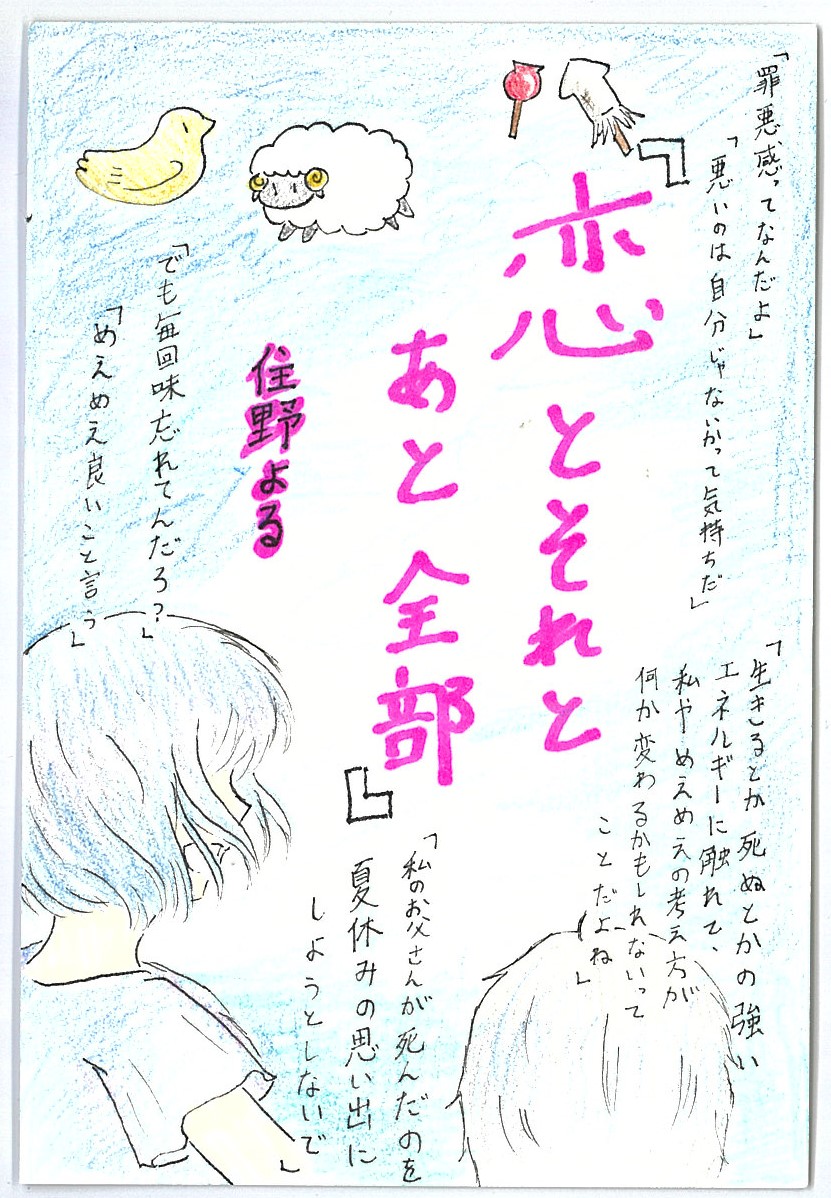 「罪悪感ってなんだよ」
「悪いのは自分じゃないかって気持ちだ」
『恋とそれと
あと全部』
住野よる
「でも毎回味忘れてんだろ？」
「めえめえ良いこと言う」
「生きるとか死ぬとかの強い
エネルギーに触れて、
私やめえめえの考え方が
何か変わるかもしれないって
ことだよね」
「私のお父さんが死んだのを
夏休みの思い出に
しようとしないで」